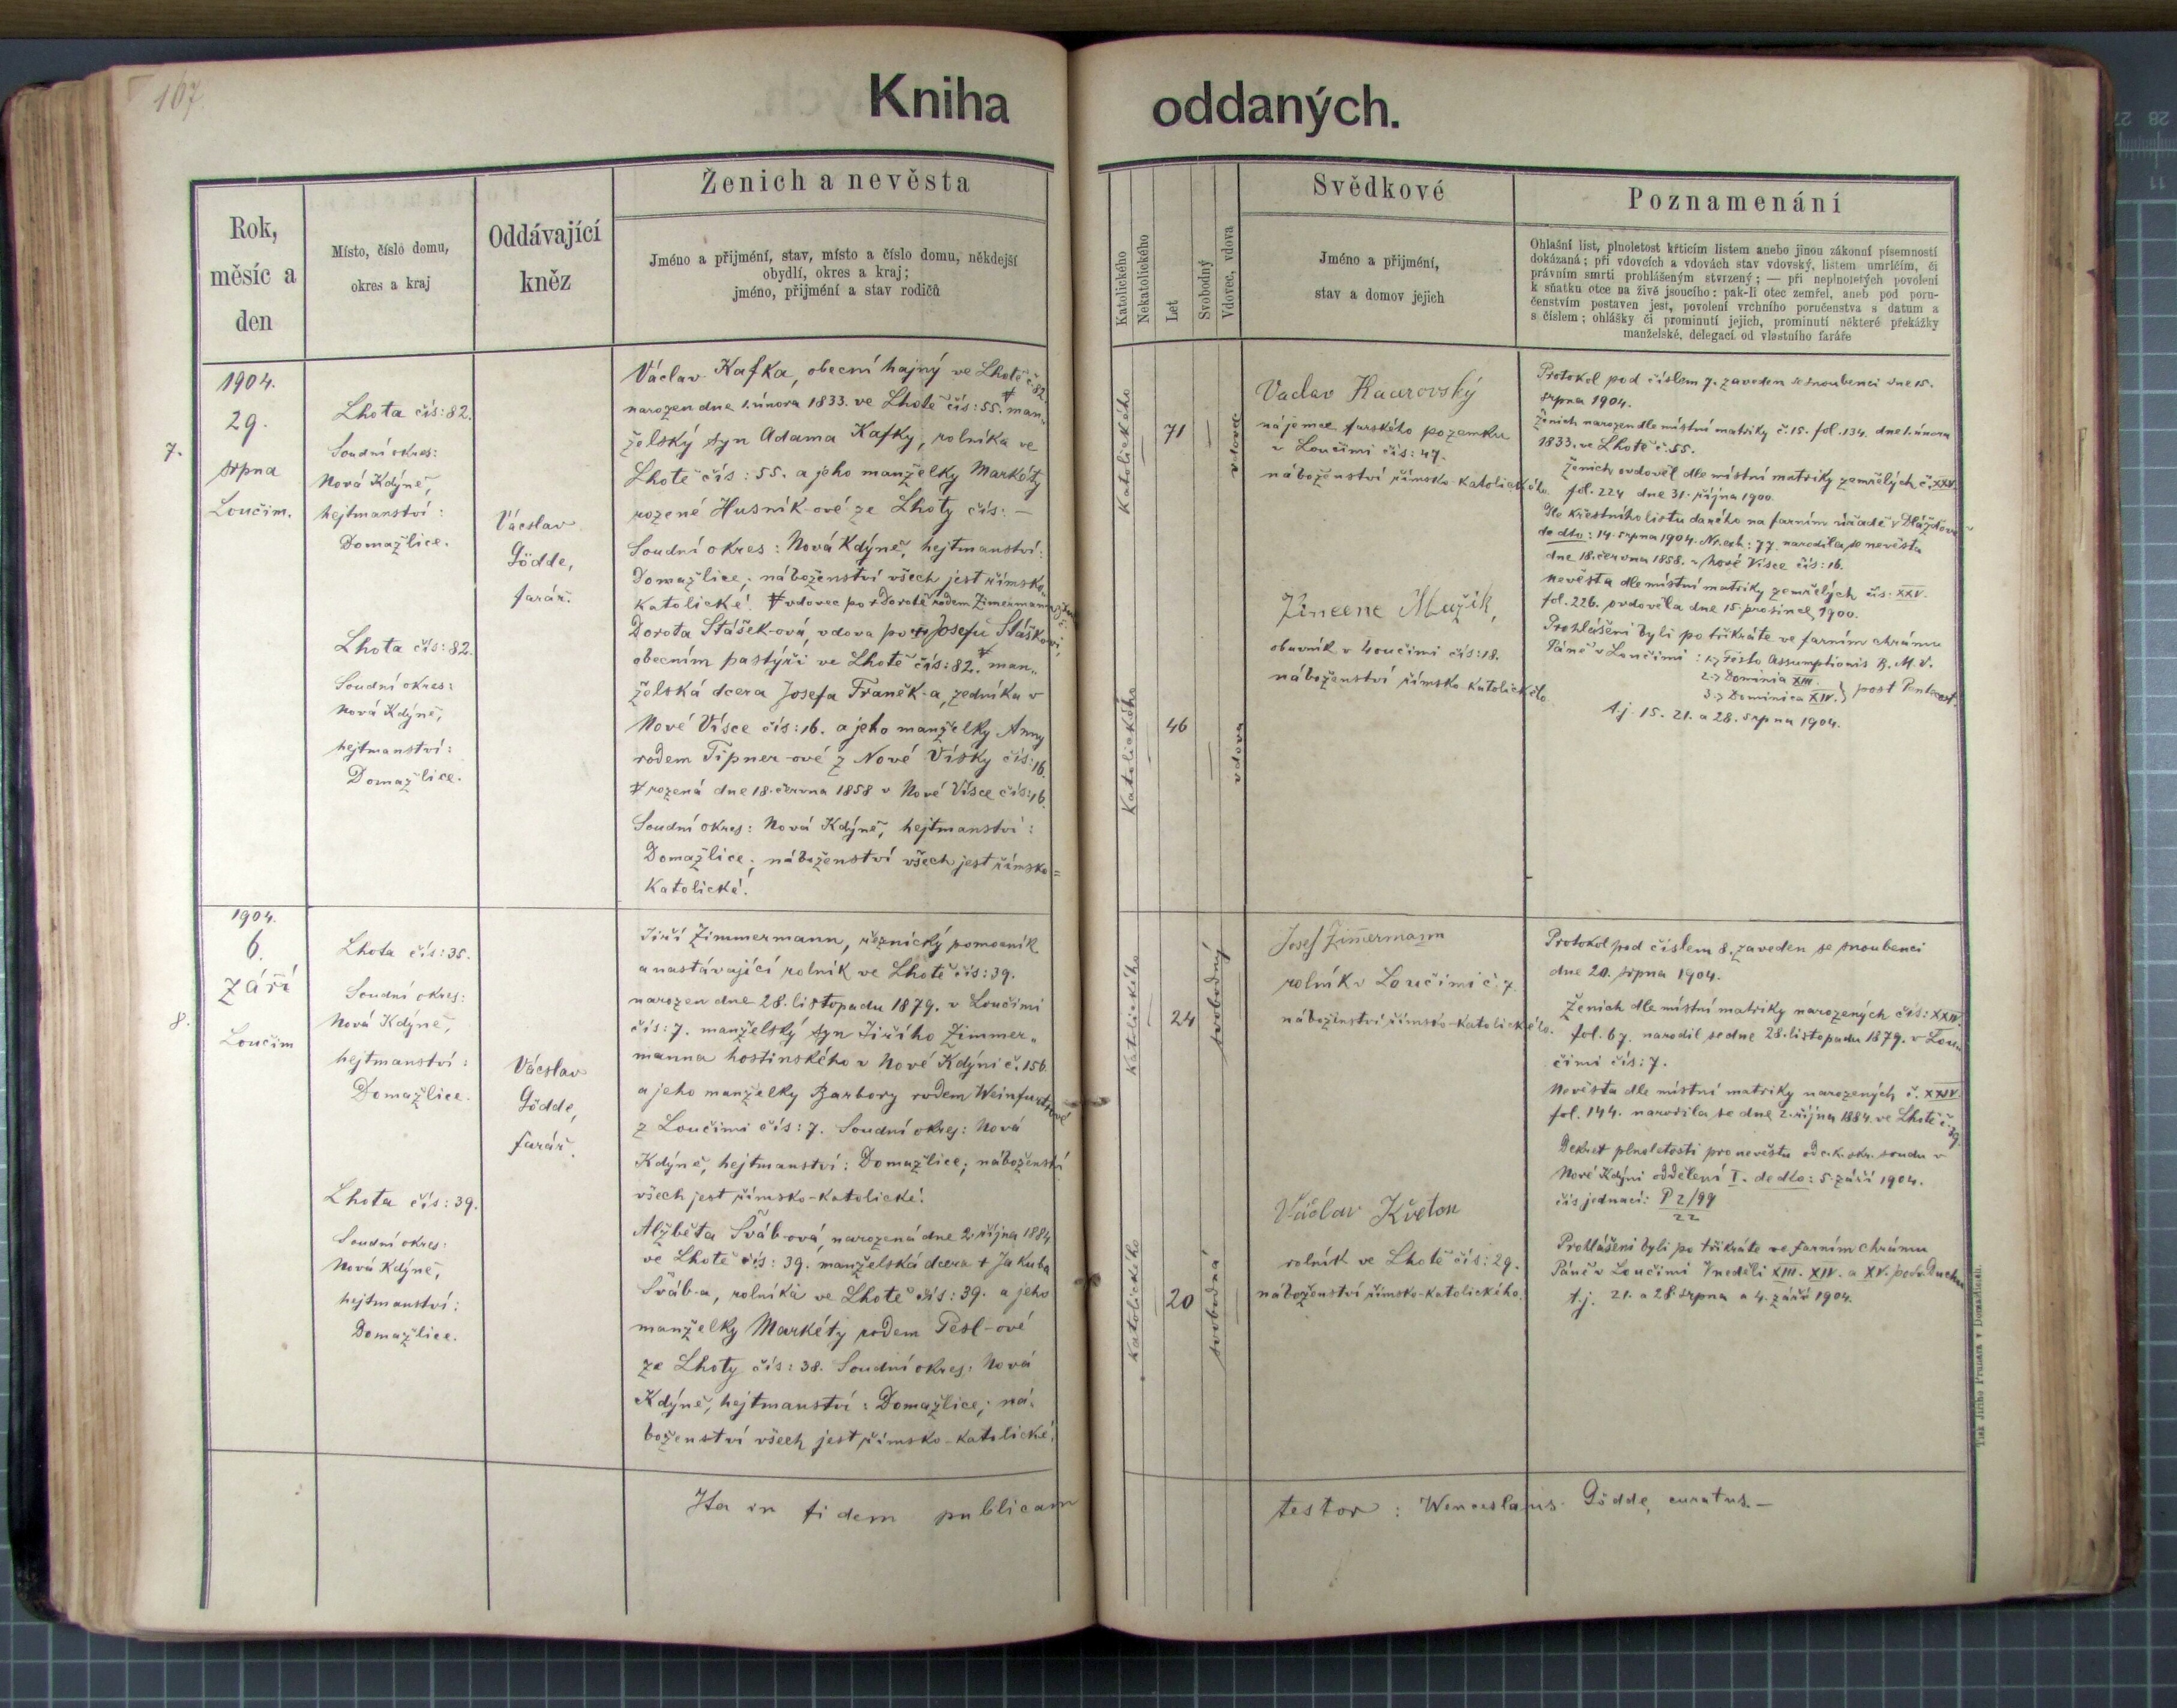 107.
Kniha oddaných.
Rok,
měsíc a
den
Místo, číslo domu,
okres a kraj
Oddávající
kněz
Ženich a nevěsta
Jméno a přijmení, stav, místo a číslo domu, někdejší
obydlí, okres a kraj;
jméno, přijmení a stav rodičů
Katolického
Nekatolického
Let
Svobodný
Vdovec, vdova
Svědkové
Jméno a přijmení,
stav a domov jejich
Poznamenání
Ohlašní list, plnoletost křticím listem anebo jinou zákonní písemností
dokázaná; při vdovcích a vdovách stav vdovský, listem umrlčím, či
právním smrti prohlášeným stvrzený; — při neplnoletých povolení
k sňatku otce na živě jsoucího: pak-li otec zemřel, aneb pod poru-
čenstvím postaven jest, povolení vrchního poručenstva s datum a
s číslem; ohlášky či prominutí jejich, prominutí některé překážky
manželské, delegací od vlastního faráře
7.
1904.
29.
srpna
Loučim.
Lhota čís: 82.
Soudní okres:
Nová Kdýně,
hejtmanství:
Domažlice.
Lhota čís: 82.
Soudní okres:
Nová Kdýně,
hejtmanství:
Domažlice.
Vácslav
Gödde,
farář.
Václav Kafka, obecní hajný ve Lhotě č. 82.
narozen dne 1. února 1833. ve Lhotě čís: 55. # man„
želský syn Adama Kafky, rolníka ve
Lhotě čís: 55. a jeho manželky Markéty
rozené Husník-ové ze Lhoty čís: —
Soudní okres: Nová Kdýně, hejtmanství:
Domažlice; náboženství všech jest římsko„
katolické. # vdovec po † Dorotě rodem
Dorota Stášek-ová, vdova po † Josefu Stáškovi,
obecním pastýři ve Lhotě čís: 82. # man„
želská dcera Josefa Franěk-a, zedníka v
Nové Vísce čís: 16. a jeho manželky Anny
rodem Tipner-ové z Nové Vísky čís: 16.
# rozená dne 18. června 1858 v Nové Vísce čís: 16.
Soudní okres: Nová Kdýně, hejtmanství:
Domažlice; náboženství všech jest římsko=
katolické.
Katolického
—
71
—
vdovec
Katolického
—
46
—
vdova
Vaclav
nájemce farského pozemku
v Loučimi čís: 47.
náboženství římsko-katolického
Vincenc Mužík,
obuvník v Loučimi čís: 18.
náboženství římsko-katolického
Protokol pod číslem 7. zaveden se snoubenci dne 15.
srpna 1904.
Ženich narozen dle místní matriky č. 15. fol. 134. dne 1. února
1833. ve Lhotě č. 55.
Ženich ovdověl dle místní matriky zemřelých č. XXV.
fol. 224 dne 31. října 1900.
Dle křestního listu daného na farním úřadě v Dlažově
de dto: 14. srpna 1904. Nr. exh: 77. narodila se nevěsta
dne 18. června 1858. v Nové Vísce čís: 16.
Nevěsta dle místní matriky zemřelých čís. XXV.
fol. 226. ovdověla dne 15. prosince 1900.
Prohlášeni byli po třikráte ve farním chrámu
Páně v Loučimi: 1.) Festo Assumptionis B. M. V.
2.) Dominica XIII.
3.) Dominica XIV. } post Pentecost.
t. j. 15. 21. a 28. srpna 1904.
8.
1904.
6.
září
Loučim
Lhota čís: 35.
Soudní okres:
Nová Kdýně,
hejtmanství:
Domažlice.
Lhota čís: 39.
Soudní okres:
Nová Kdýně,
hejtmanství:
Domažlice.
Vácslav
Gödde,
farář.
Jiří Zimmermann, řeznický pomocník
a nastávající rolník ve Lhotě čís: 39.
narozen dne 28. listopadu 1879. v Loučimi
čís: 7. manželský syn Jiřího Zimmer„
manna hostinského v Nové Kdýni č. 156.
a jeho manželky Barbory rodem Weinfurtrové
z Loučimi čís: 7. Soudní okres: Nová
Kdýně, hejtmanství: Domažlice; náboženství
všech jest římsko-katolické.
Alžběta Šváb-ová, narozená dne 2. října 1884
ve Lhotě čís: 39. manželská dcera † Jakuba
Šváb-a, rolníka ve Lhotě čís: 39. a jeho
manželky Markéty rodem Pesl-ové
ze Lhoty čís: 38. Soudní okres: Nová
Kdýně, hejtmanství: Domažlice; ná„
boženství všech jest římsko-katolické.
Katolického
—
24
svobodný
—
Katolického
—
20
svobodná
—
Josef Zimermann
rolník v Loučimi č. 7.
náboženství římsko-katolického.
Václav Květon
rolník ve Lhotě čís: 29.
náboženství římsko-katolického.
Protokol pod číslem 8. zaveden se snoubenci
dne 20. srpna 1904.
Ženich dle místní matriky narozených čís: XXIV.
fol. 67. narodil se dne 28. listopadu 1879. v Lou„
čimi čís: 7.
Nevěsta dle místní matriky narozených č. XXIV.
fol. 144. narodila se dne 2. října 1884. ve Lhotě č. 39.
Dekret plnoletosti pro nevěstu od c. k. okr. soudu v
Nové Kdýni oddělení I. de dto: 5. září 1904.
čís jednací: P 2/99
22
Prohlášeni byli po třikráte ve farním chrámu
Páně v Loučimi neděli XIII. XIV. a XV. po sv. Duchu
t. j. 21. a 28. srpna a 4. září 1904.
Ita in fidem publicam testor: Wenceslaus Gödde, curatus. —
Tisk Jiřího Prunara v Domažlicích.